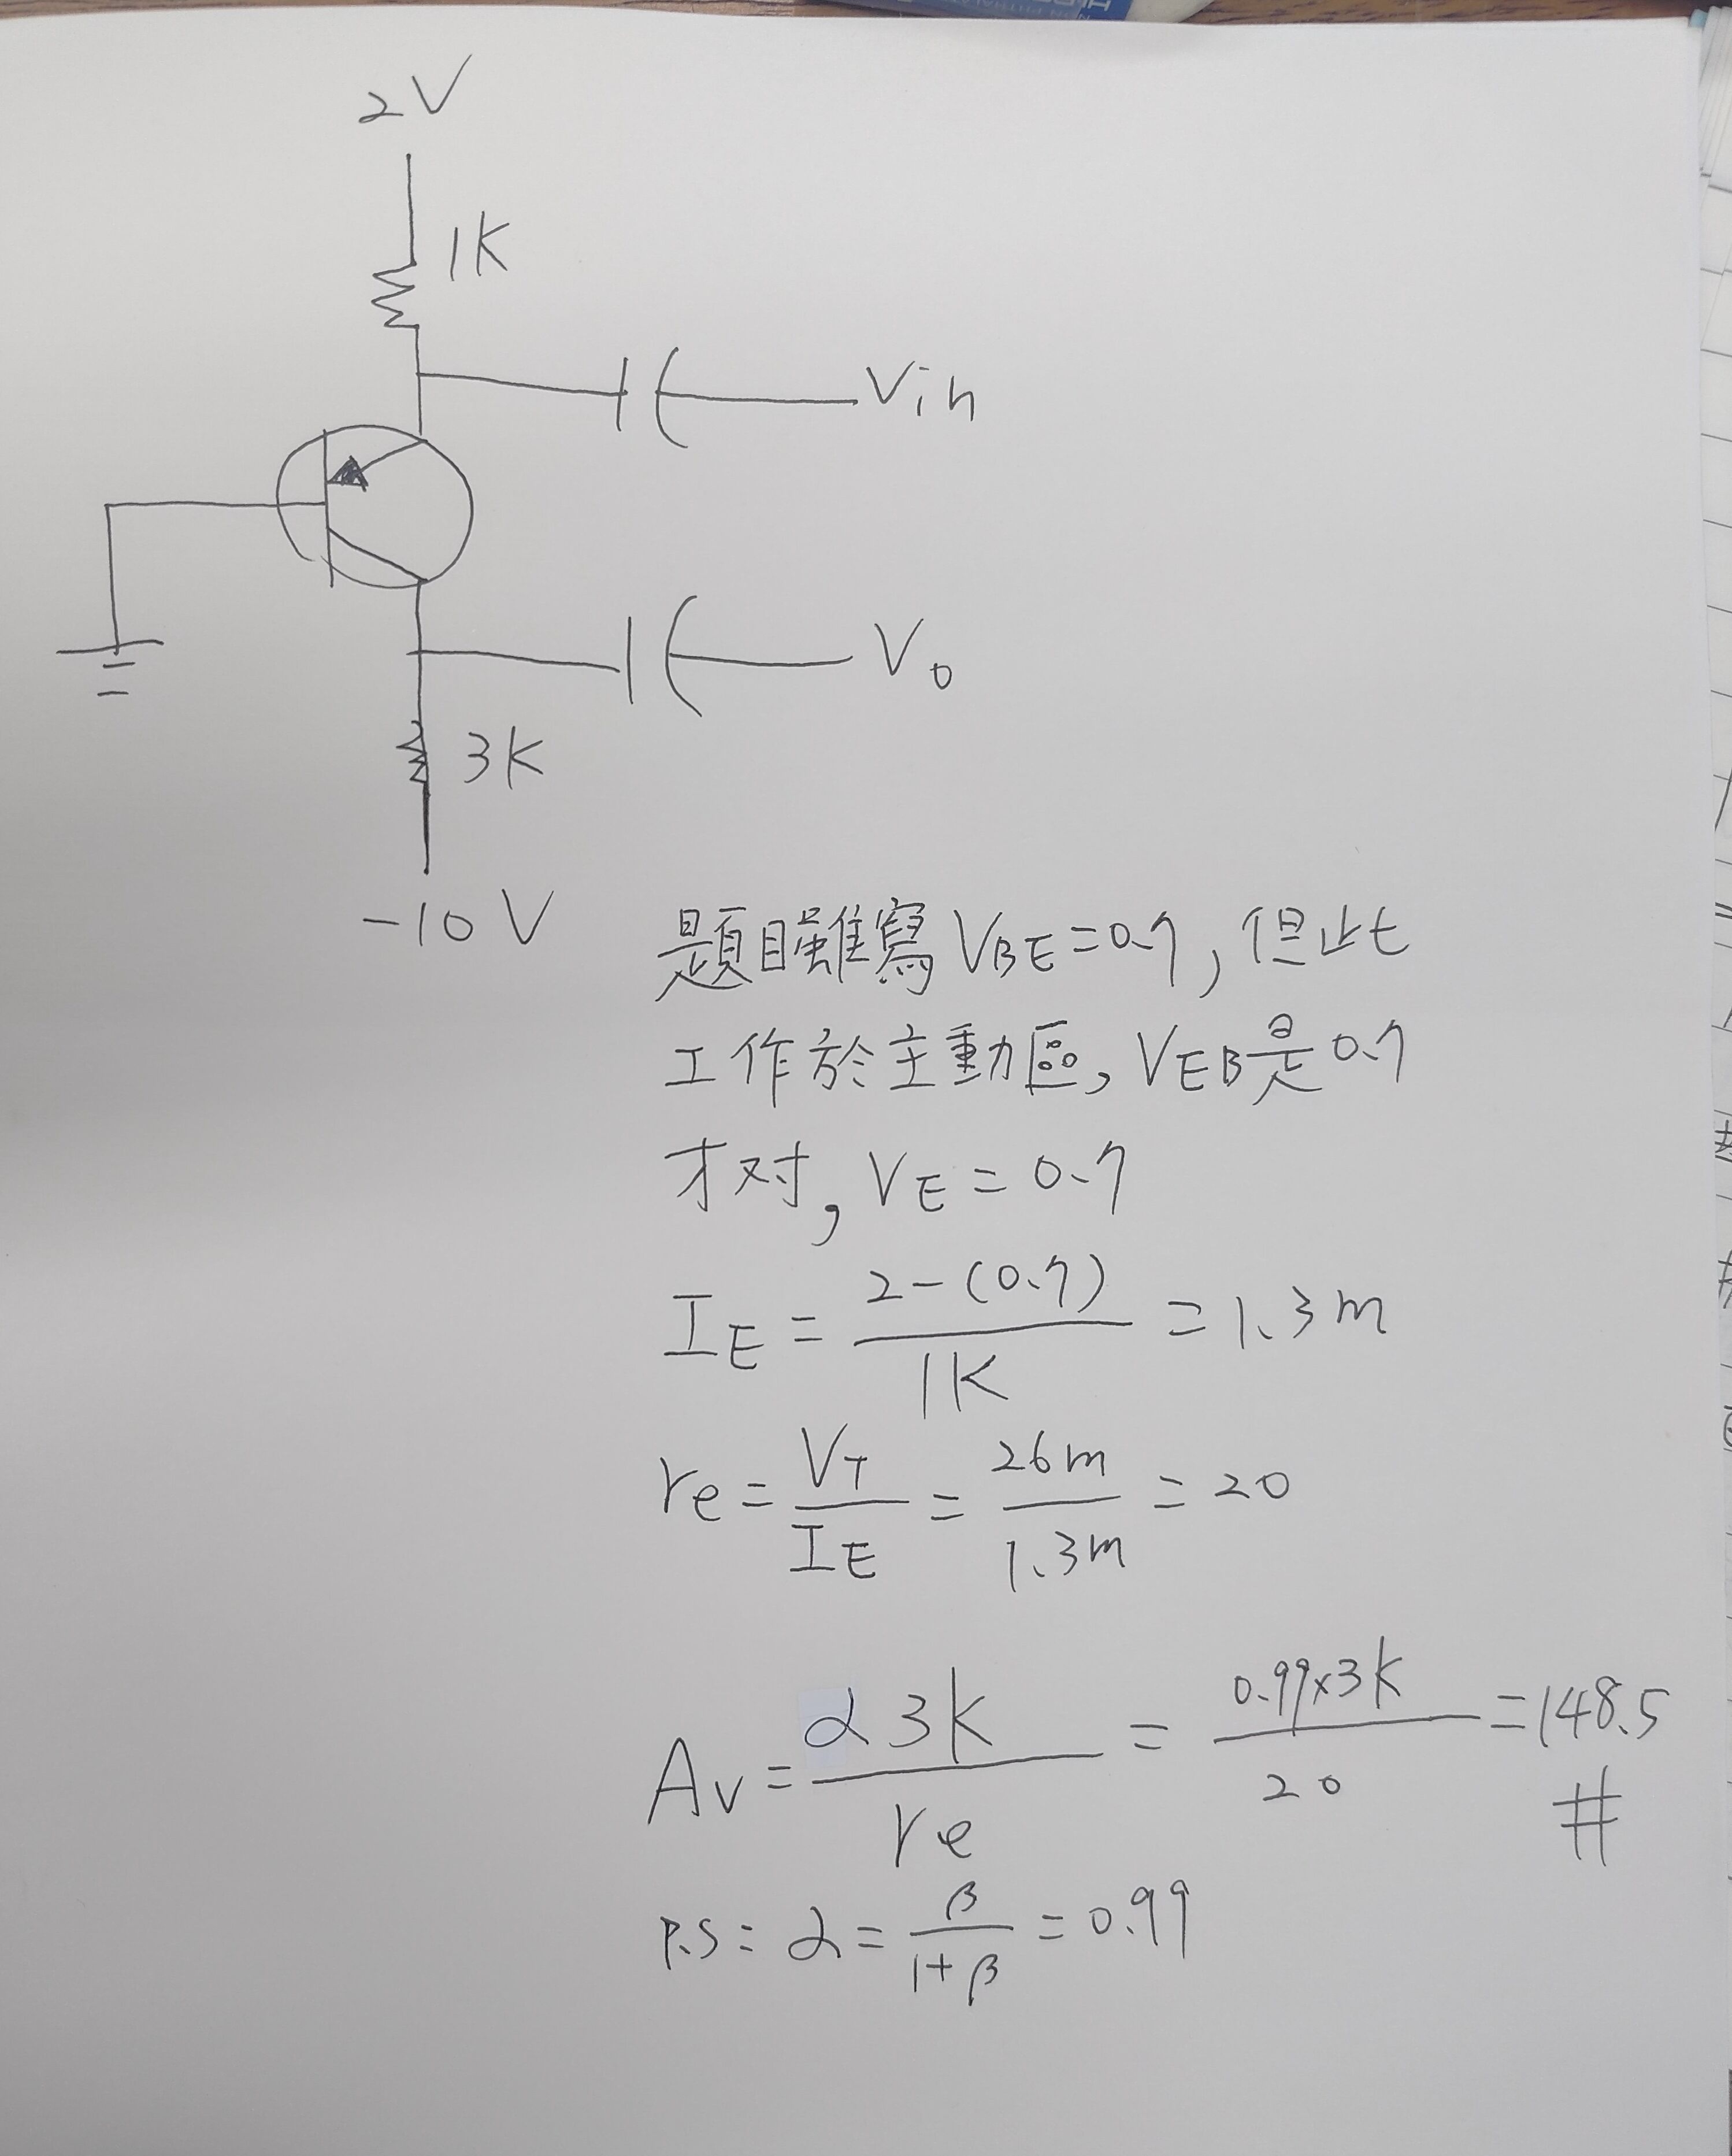 2V
1K
Vin
Vo
3K
-10V
題目雖寫VBE=0.7,但此
工作於主動區,VEB是0.7
才对,VE=0.7
IE = 2-(0.7) / 1K = 1.3m
re = VT / IE = 26m / 1.3m = 20
Av = α3K / re = 0.99×3K / 20 = 148.5 #
P.S: α = β / 1+β = 0.99